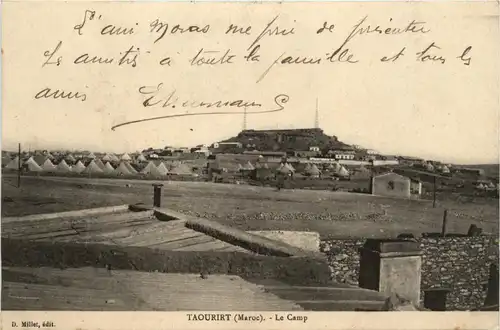 L'ami Moras me prie de présenter
Ses amitiés à toute la famille et tous les
amis
TAOURIRT (Maroc). - Le Camp
D. Millet, édit.